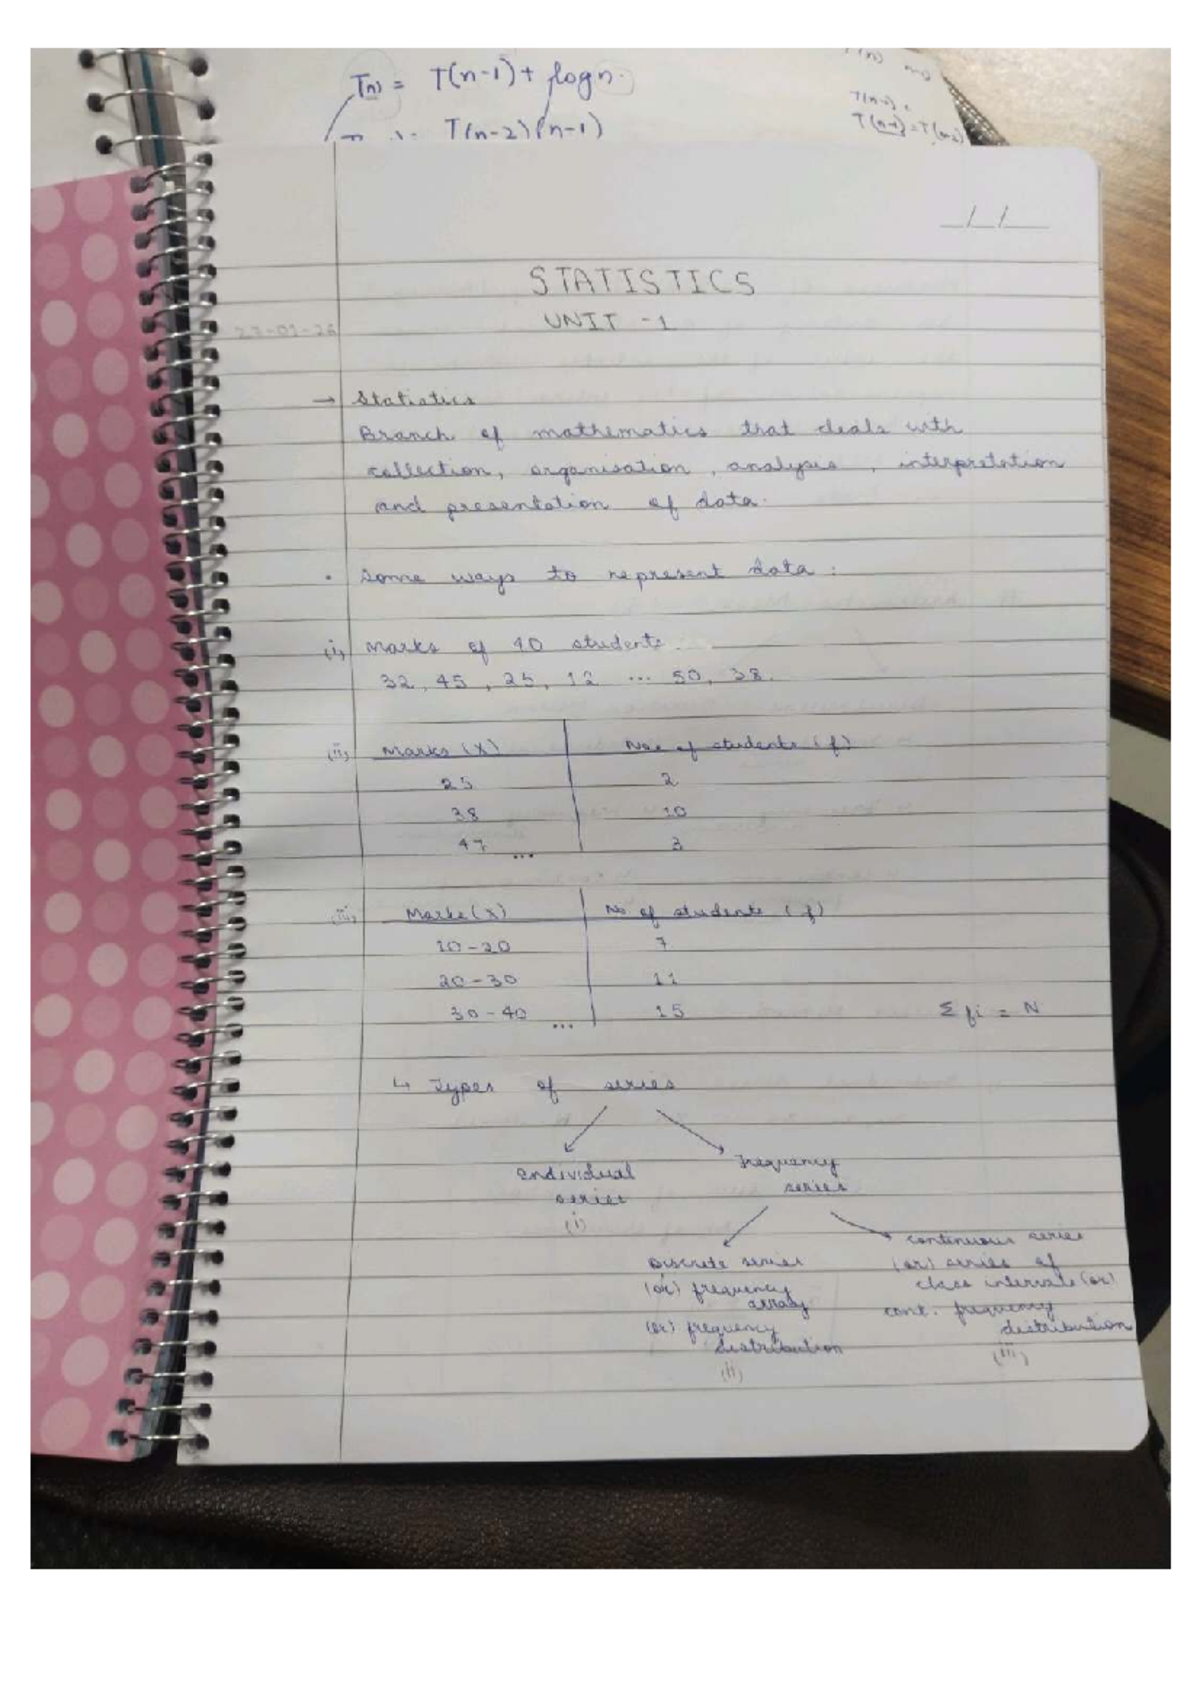 T(n) = T(n-1) + logn.
T(n-2) (n-1)
T(n-1) = T(n-2)
_/_/_
STATISTICS
UNIT - 1
27-01-26
→ Statistics
Branch of mathematics that deals with
collection, organisation, analysis, interpretation
and presentation of data.
• Some ways to represent data:
(i) Marks of 40 students.
32, 45, 25, 12 ... 50, 38.
(ii) Marks (X) No. of students (f)
25 2
38 10
47 ... 3
(iii) Marks (X) No of students (f)
10-20 7
20-30 11
30-40 ... 15 Σ fi = N
↳ Types of series
Individual series (i)
Frequency series
Discrete series
(or) frequency
array
(or) frequency
distribution
(ii)
continuous series
(or) series of
class intervals (or)
cont. frequency
distribution
(iii)